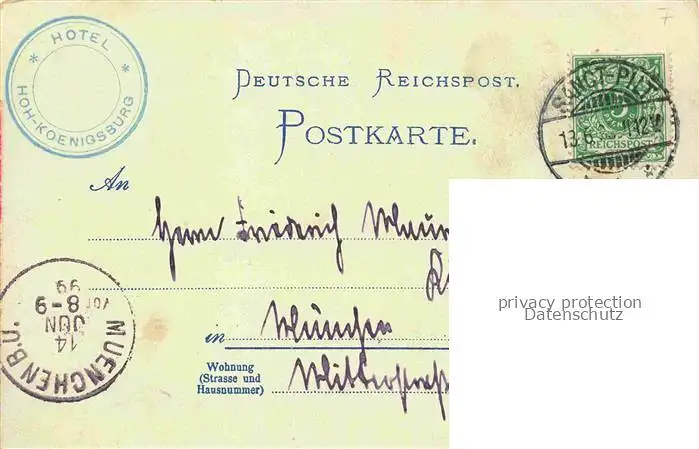 7
* HOTEL *
HOH-KOENIGSBURG
DEUTSCHE REICHSPOST.
POSTKARTE.
SANCT-PILT
13.6.
REICHSPOST
An
Herrn Friedrich
privacy protection
Datenschutz
MUENCHEN B.O.
14
JUN
8-9
Vor
99
in München
Wohnung
(Strasse und
Hausnummer)